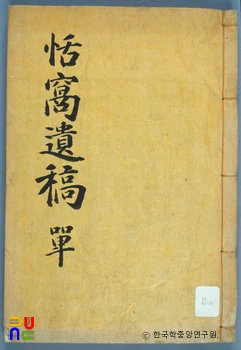 恬窩遺稿 單
ⓒ 한국학중앙연구원